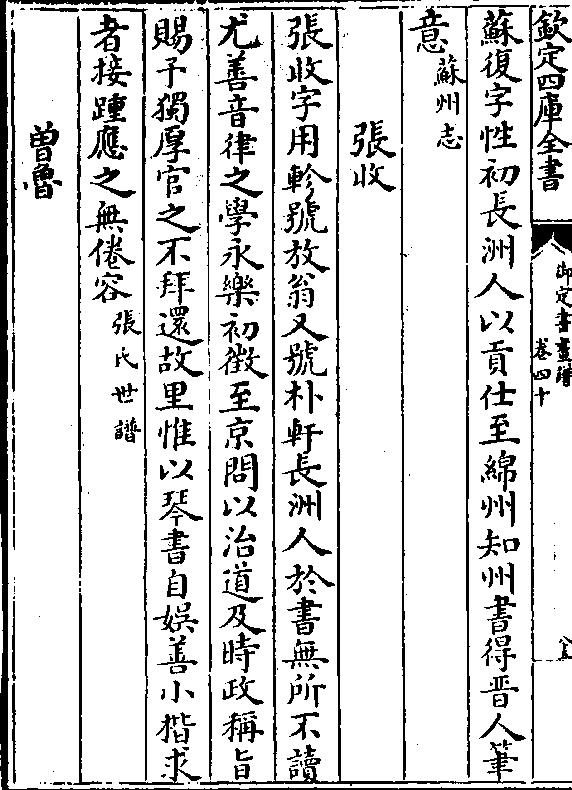 欽定四庫全書
御定書畫譜
卷四十
蘇復字性初長洲人以貢仕至綿州知州書得晉人筆
意蘇州志
張收
張收字用軫號放翁又號朴軒長洲人於書無所不讀
尤善音律之學永樂初徵至京問以治道及時政稱旨
賜予獨厚官之不拜還故里惟以琴書自娛善小楷求
者接踵應之無倦容張氏世譜
曾魯